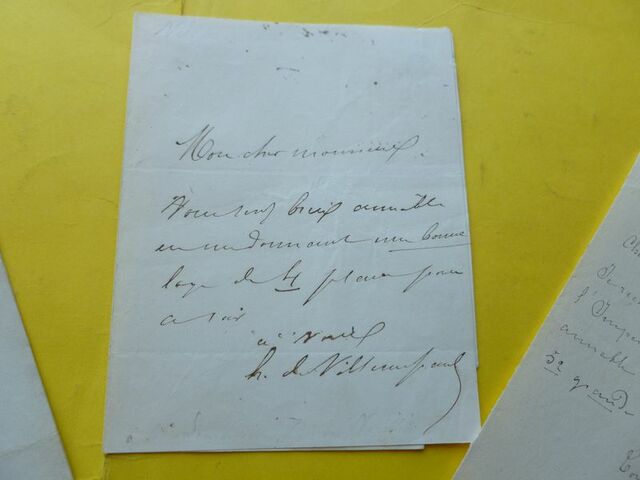 Mon cher monsieur.
Vous serez bien aimable
en me donnant une bonne
loge de 4 places pour
ce soir
à vous
h. de Villemessant
Je
l'Imper
aimable
5 grand